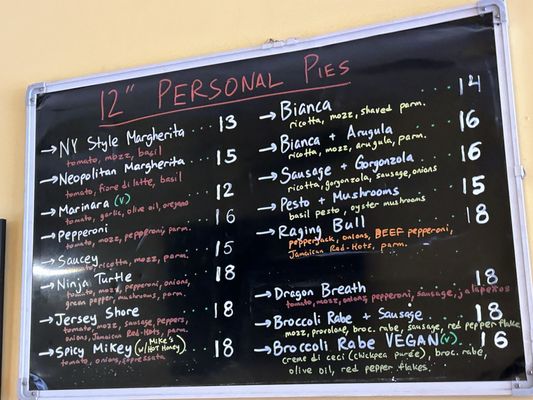 12" PERSONAL PIES
→NY STYLE MARGHERITA ... 13
tomato, mozz, basil
→NEOPOLITAN MARGHERITA ... 15
tomato, fiore di latte, basil
→MARINARA (V) ... 12
tomato, garlic, olive oil, oregano
→PEPPERONI ... 16
tomato, mozz, pepperoni, parm.
→SAUCEY ... 15
tomato, ricotta, mozz, parm.
→NINJA TURTLE ... 18
tomato, mozz, pepperoni, onions,
green pepper, mushrooms, parm.
→JERSEY SHORE ... 18
tomato, mozz, sausage, peppers,
onions, Jamaican Red-Hots, parm.
→SPICY MIKEY (w/ MIKE'S HOT HONEY) ... 18
tomato, onions, sopressata
→BIANCA ... 14
ricotta, mozz, shaved parm.
→BIANCA + ARUGULA ... 16
ricotta, mozz, arugula, parm.
→SAUSAGE + GORGONZOLA ... 16
ricotta, gorgonzola, sausage, onions
→PESTO + MUSHROOMS ... 15
basil pesto, oyster mushrooms
→RAGING BULL ... 18
pepperjack, onions, BEEF pepperoni,
Jamaican Red-Hots, parm.
→DRAGON BREATH ... 18
tomato, mozz, onions, pepperoni, sausage, jalapeños
→BROCCOLI RABE + SAUSAGE ... 18
mozz, provolone, broc. rabe, sausage, red pepper flake
→BROCCOLI RABE VEGAN (V) ... 16
creme di ceci (chickpea purée), broc. rabe,
olive oil, red pepper flakes